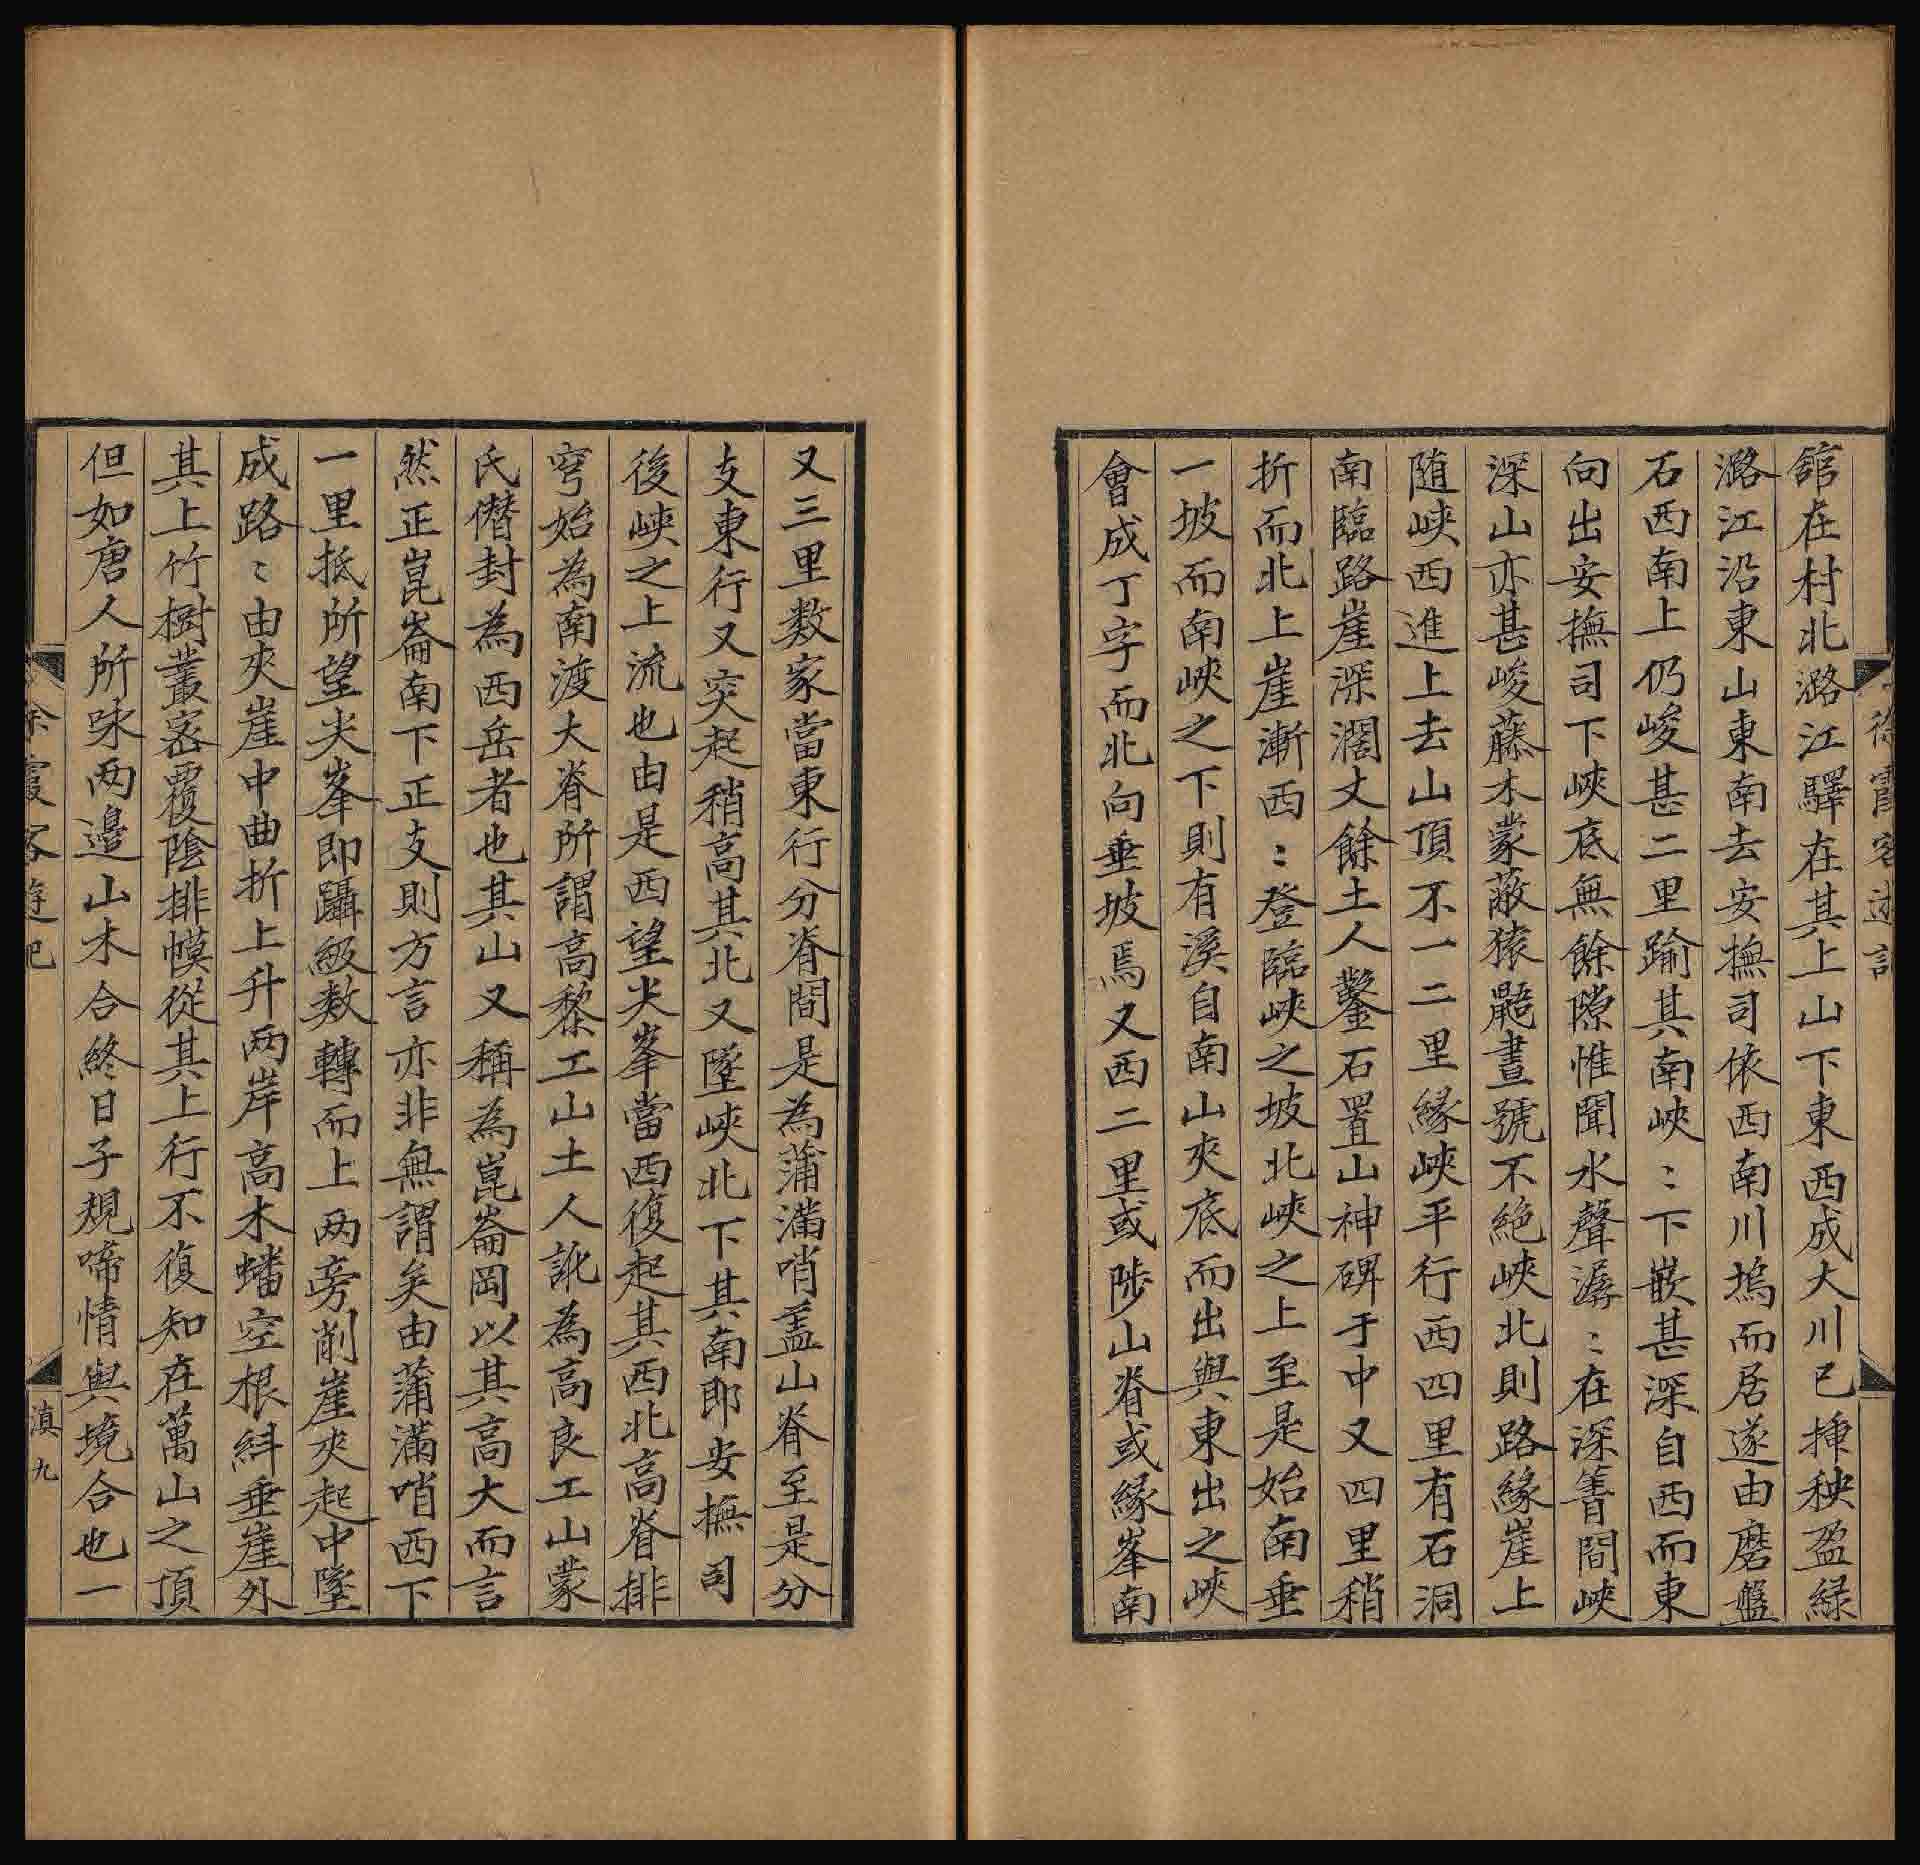 舘在村北潞江驛在其上山下東西成大川已揷秧盈緑
潞江沿東山東南去安撫司依西南川塢而居遂由磨盤
石西南上仍峻甚二里踰其南峽〻下嵌甚深自西而東
向出安撫司下峽底無餘隙惟聞水聲潺〻在深箐間峽
深山亦甚峻藤木蒙蔽猿鼯晝號不絶峽北則路緣崖上
随峽西進上去山頂不一二里緣峽平行西四里有石洞
南臨路崖深濶丈餘土人鑿石置山神碑于中又四里稍
折而北上崖漸西〻登臨峽之坡北峽之上至是始南垂
一坡而南峽之下則有溪自南山夾底而出與東出之峽
會成丁字而北向垂坡焉又西二里或陟山脊或緣峯南
徐霞客遊記
又三里数家當東行分脊間是為蒲滿哨盖山脊至是分
支東行又突起稍高其北又墜峽北下其南即安撫司
後峽之上流也由是西望尖峯當西復起其西北高脊排
穹始為南渡大脊所謂高黎工山土人訛為高良工山蒙
氏僭封為西岳者也其山又稱為崑崙岡以其高大而言
然正崑崙南下正支則方言亦非無謂矣由蒲滿哨西下
一里抵所望尖峯即躡級数轉而上两旁削崖夾起中墜
成路〻由夾崖中曲折上升两岸高木蟠空根糾垂崖外
其上竹樹叢密覆陰排幙從其上行不復知在萬山之頂
但如唐人所咏两邉山木合終日子規啼情與境合也一
徐霞客遊記
滇九